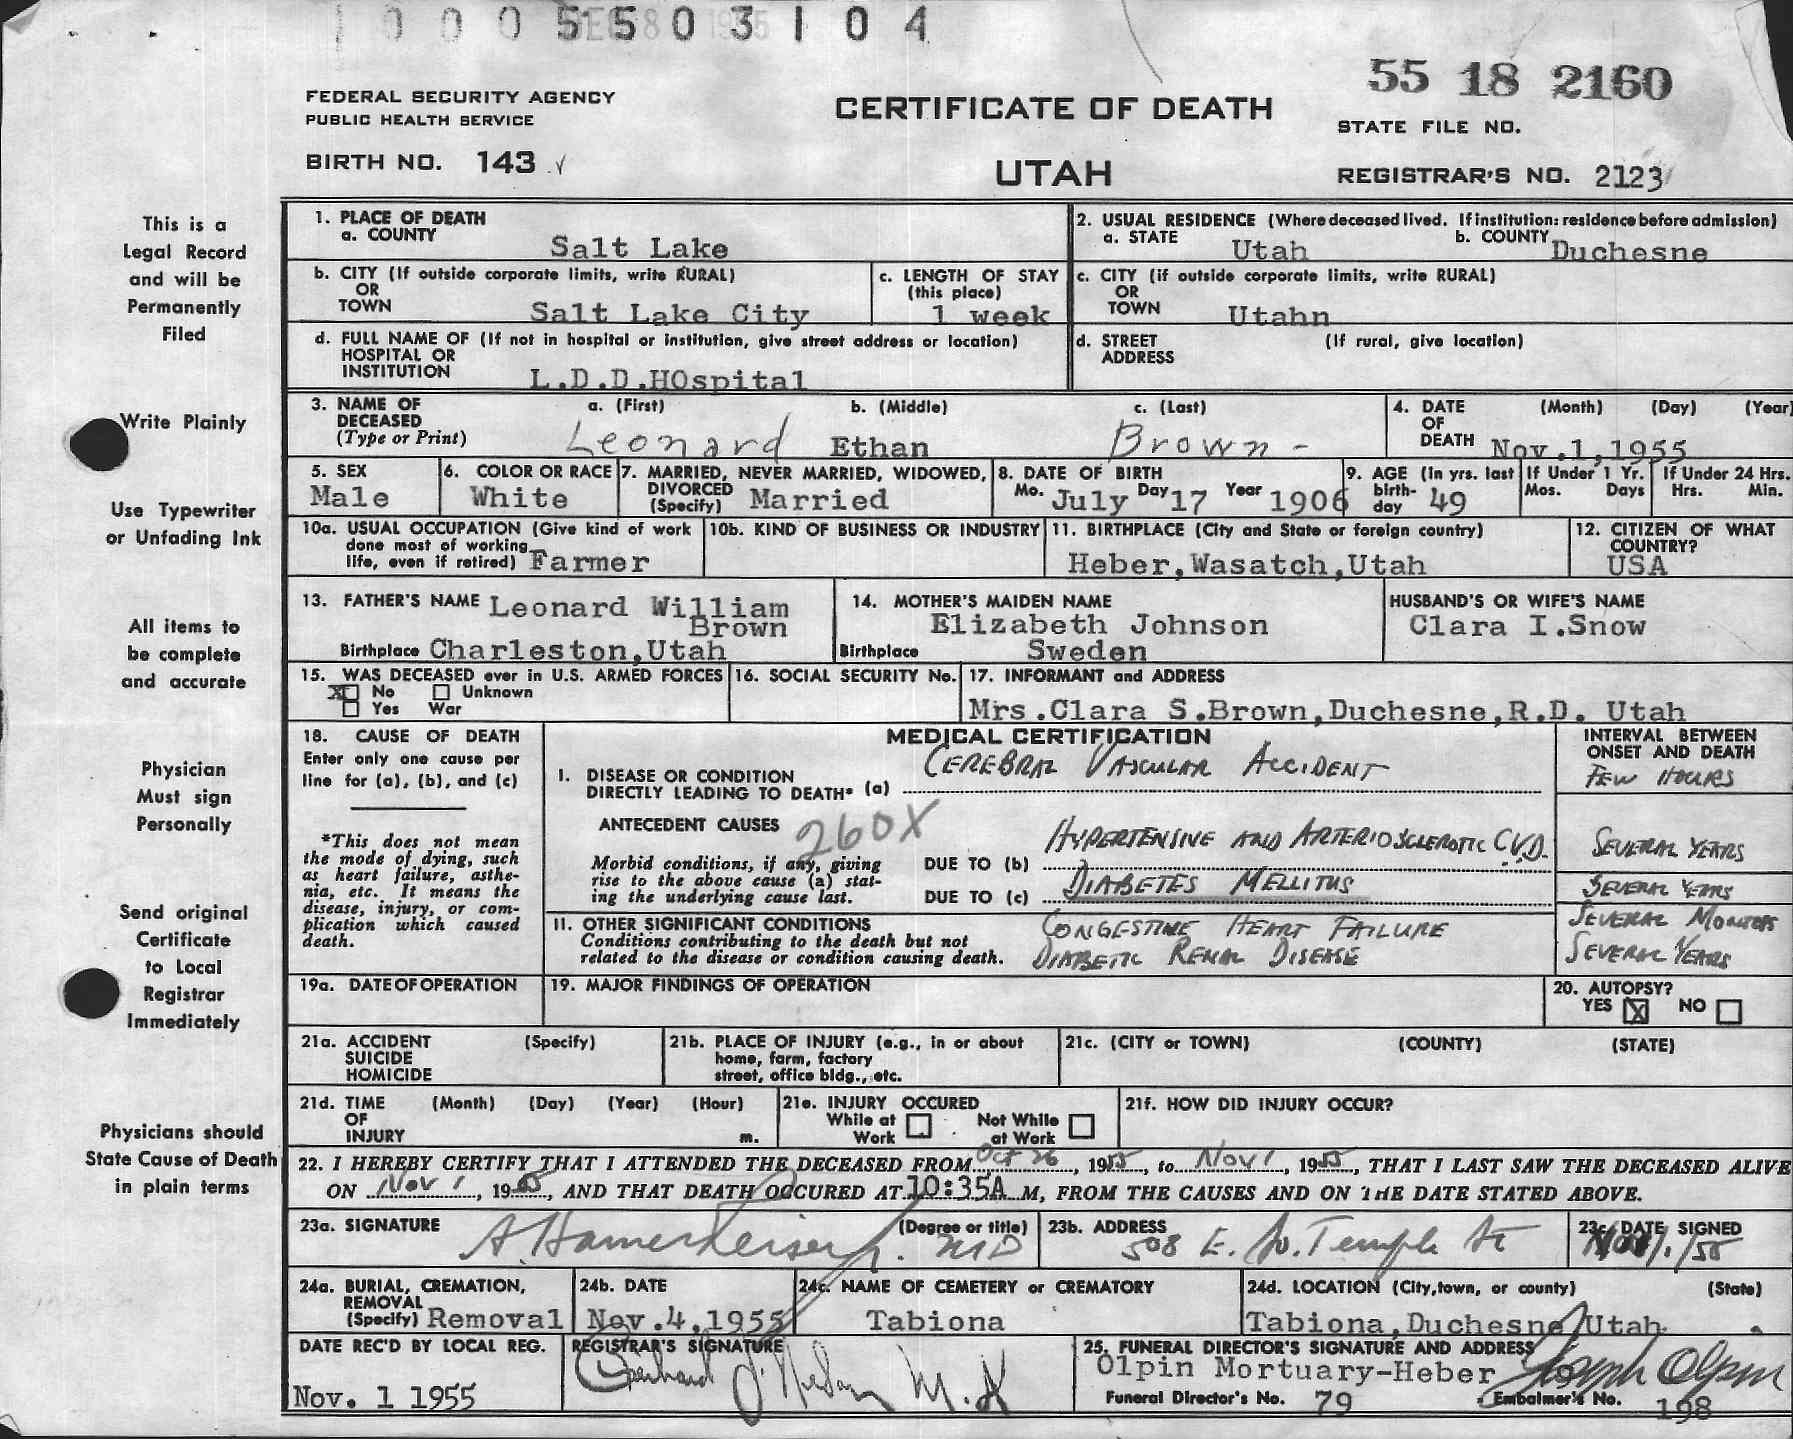 1 0 0 0 5 5 0 3 1 0 4
55 18 2160
FEDERAL SECURITY AGENCY
PUBLIC HEALTH SERVICE
CERTIFICATE OF DEATH
STATE FILE NO.
BIRTH NO. 143
UTAH
REGISTRAR'S NO. 2123
This is a
Legal Record
and will be
Permanently
Filed
Write Plainly
Use Typewriter
or Unfading Ink
All items to
be complete
and accurate
Physician
Must sign
Personally
Send original
Certificate
to Local
Registrar
Immediately
Physicians should
State Cause of Death
in plain terms
1. PLACE OF DEATH
a. COUNTY Salt Lake
2. USUAL RESIDENCE (Where deceased lived. If institution: residence before admission)
a. STATE Utah b. COUNTY Duchesne
b. CITY (If outside corporate limits, write RURAL)
OR
TOWN Salt Lake City
c. LENGTH OF STAY
(this place)
1 week
c. CITY (if outside corporate limits, write RURAL)
OR
TOWN Utahn
d. FULL NAME OF (If not in hospital or institution, give street address or location)
HOSPITAL OR
INSTITUTION L.D.D.HOspital
d. STREET (If rural, give location)
ADDRESS
3. NAME OF a. (First) b. (Middle) c. (Last)
DECEASED
(Type or Print) Leonard Ethan Brown -
4. DATE (Month) (Day) (Year)
OF
DEATH Nov.1,1955
5. SEX
Male
6. COLOR OR RACE
White
7. MARRIED, NEVER MARRIED, WIDOWED,
DIVORCED
(Specify) Married
8. DATE OF BIRTH
Mo. July Day 17 Year 1906
9. AGE (In yrs. last
birth-
day 49
If Under 1 Yr.
Mos. Days
If Under 24 Hrs.
Hrs. Min.
10a. USUAL OCCUPATION (Give kind of work
done most of working
life, even if retired) Farmer
10b. KIND OF BUSINESS OR INDUSTRY
11. BIRTHPLACE (City and State or foreign country)
Heber,Wasatch,Utah
12. CITIZEN OF WHAT
COUNTRY?
USA
13. FATHER'S NAME Leonard William
Brown
Birthplace Charleston,Utah
14. MOTHER'S MAIDEN NAME
Elizabeth Johnson
Birthplace Sweden
HUSBAND'S OR WIFE'S NAME
Clara I.Snow
15. WAS DECEASED ever in U.S. ARMED FORCES
X No Unknown
Yes War
16. SOCIAL SECURITY No.
17. INFORMANT and ADDRESS
Mrs.Clara S.Brown,Duchesne,R.D. Utah
18. CAUSE OF DEATH
Enter only one cause per
line for (a), (b), and (c)
*This does not mean
the mode of dying, such
as heart failure, asthe-
nia, etc. It means the
disease, injury, or com-
plication which caused
death.
MEDICAL CERTIFICATION
INTERVAL BETWEEN
ONSET AND DEATH
I. DISEASE OR CONDITION
DIRECTLY LEADING TO DEATH* (a) CEREBRAL VASCULAR ACCIDENT FEW HOURS
ANTECEDENT CAUSES 260X
Morbid conditions, if any, giving
rise to the above cause (a) stat-
ing the underlying cause last.
DUE TO (b) HYPERTENSIVE AND ARTERIOSCLEROTIC C.V.D. SEVERAL YEARS
DUE TO (c) DIABETES MELLITUS SEVERAL YEARS
11. OTHER SIGNIFICANT CONDITIONS
Conditions contributing to the death but not
related to the disease or condition causing death.
CONGESTIVE HEART FAILURE SEVERAL MONTHS
DIABETIC RENAL DISEASE SEVERAL YEARS
19a. DATE OF OPERATION
19. MAJOR FINDINGS OF OPERATION
20. AUTOPSY?
YES X NO
21a. ACCIDENT (Specify)
SUICIDE
HOMICIDE
21b. PLACE OF INJURY (e.g., in or about
home, farm, factory
street, office bldg., etc.
21c. (CITY or TOWN) (COUNTY) (STATE)
21d. TIME (Month) (Day) (Year) (Hour)
OF
INJURY m.
21e. INJURY OCCURED
While at Work Not While at Work
21f. HOW DID INJURY OCCUR?
22. I HEREBY CERTIFY THAT I ATTENDED THE DECEASED FROM Oct 26, 1955, to Nov 1, 1955, THAT I LAST SAW THE DECEASED ALIVE
ON Nov 1, 1955, AND THAT DEATH OCCURED AT 10:35A M, FROM THE CAUSES AND ON THE DATE STATED ABOVE.
23a. SIGNATURE (Degree or title) MD
23b. ADDRESS
508 E. So. Temple St
23c. DATE SIGNED
Nov 1/55
24a. BURIAL, CREMATION,
REMOVAL
(Specify) Removal
24b. DATE
Nov.4,1955
24c. NAME OF CEMETERY or CREMATORY
Tabiona
24d. LOCATION (City,town, or county) (State)
Tabiona,Duchesne,Utah
DATE REC'D BY LOCAL REG.
Nov. 1 1955
REGISTRAR'S SIGNATURE
25. FUNERAL DIRECTOR'S SIGNATURE AND ADDRESS
Olpin Mortuary-Heber Joseph Olpin
Funeral Director's No. 79 Embalmer's No. 198